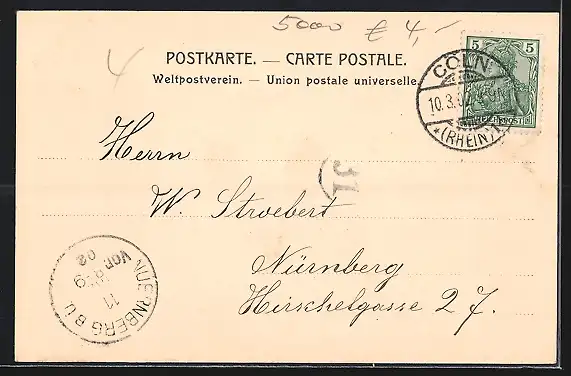 5000 € 4,-
POSTKARTE. — CARTE POSTALE.
Weltpostverein. — Union postale universelle.
5 5
REICHSPOST
CÖLN
10.3.02
* (RHEIN) *
Herrn
W. Stroebert
Nürnberg
Hirschelgasse 27.
NUERNBERG B U.
11
VOR 8-9
02